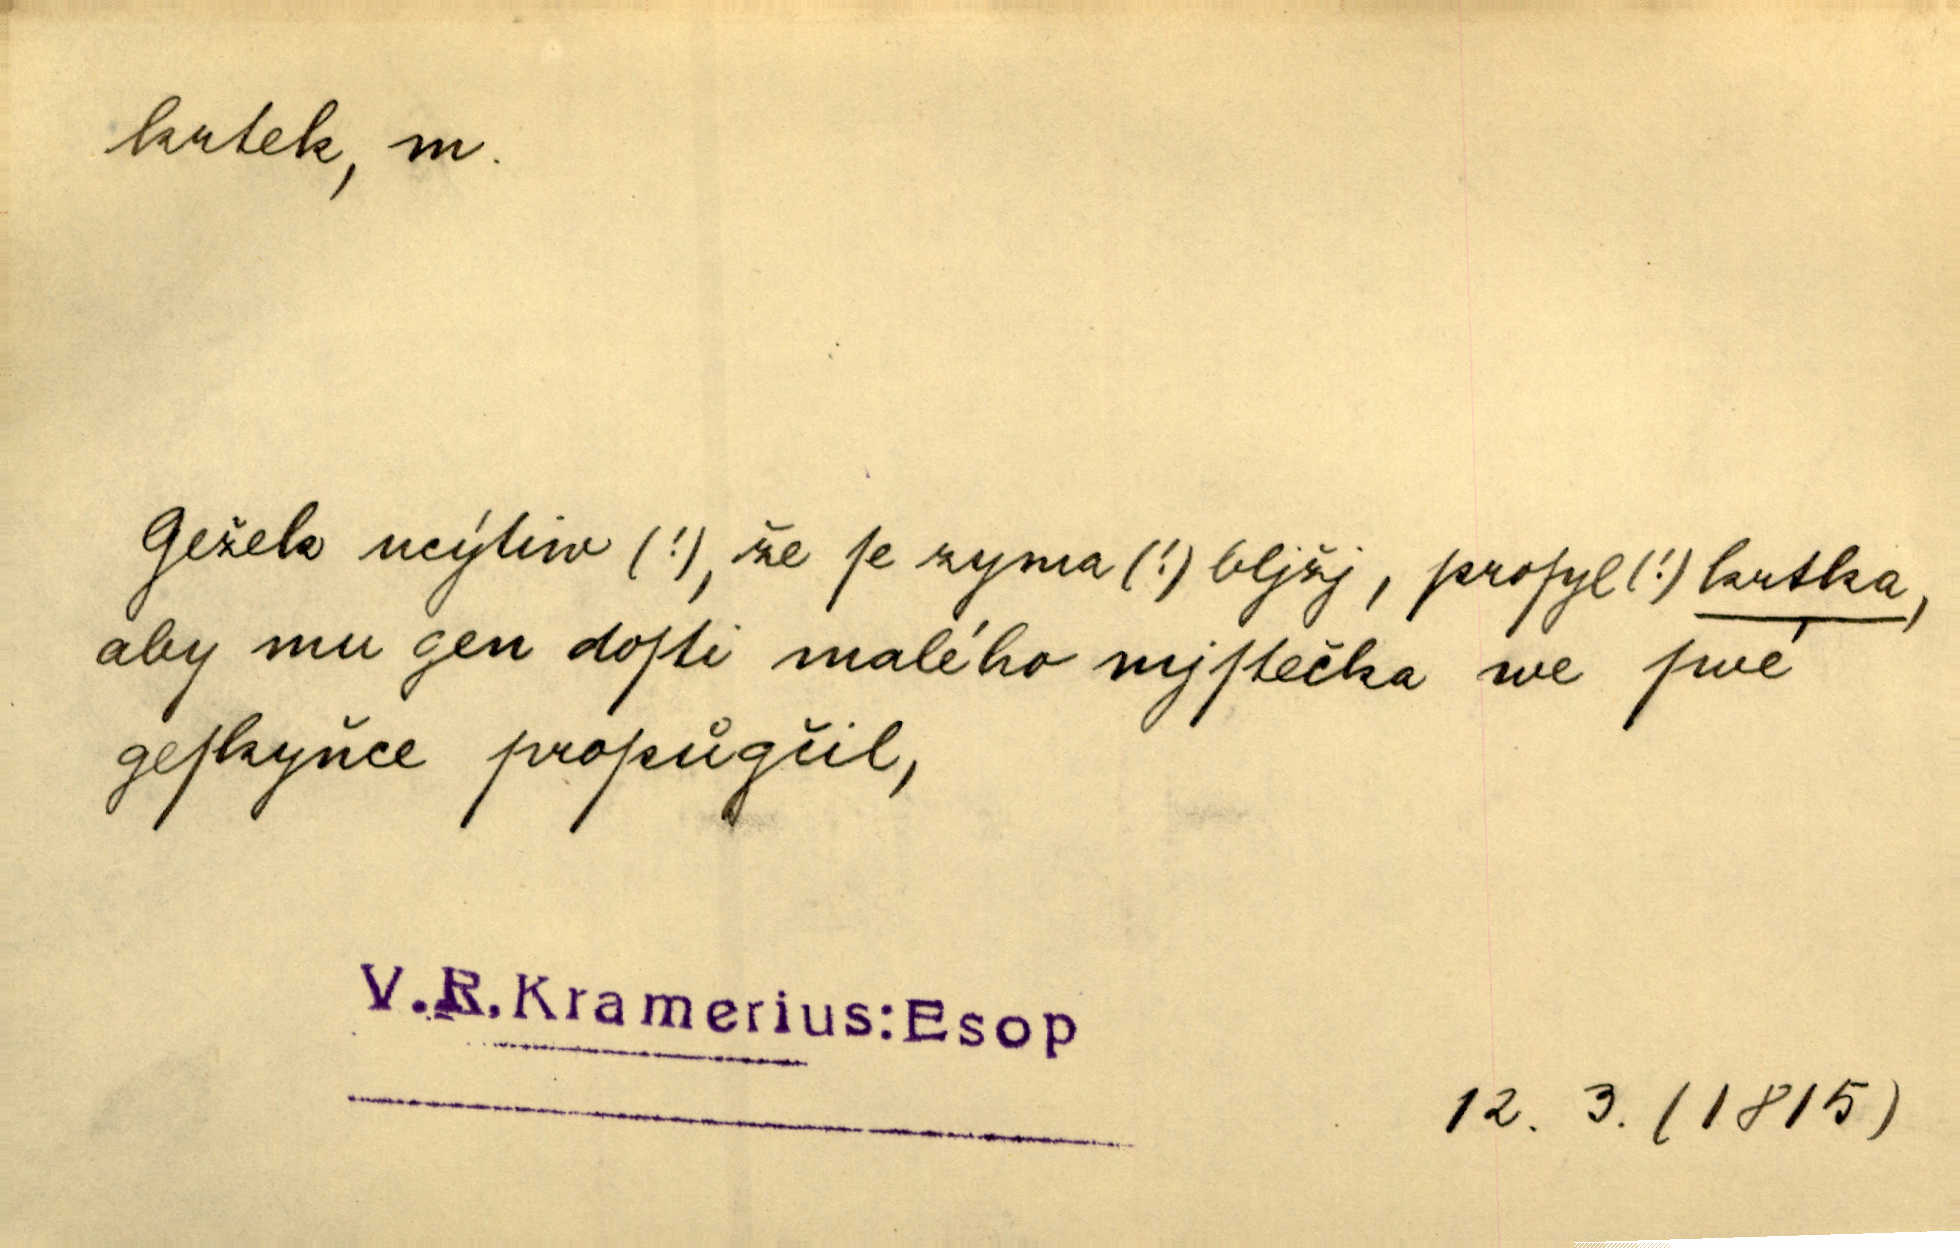 krtek, m.
Gežek ucýtiw (!), že ſe zyma (!) bljžj, proſyl (!) krtka,
aby mu gen doſti malého mjſtečka we ſwé
geſkyňce propůgčil,
V.R.Kramerius:Esop
12. 3. (1815)